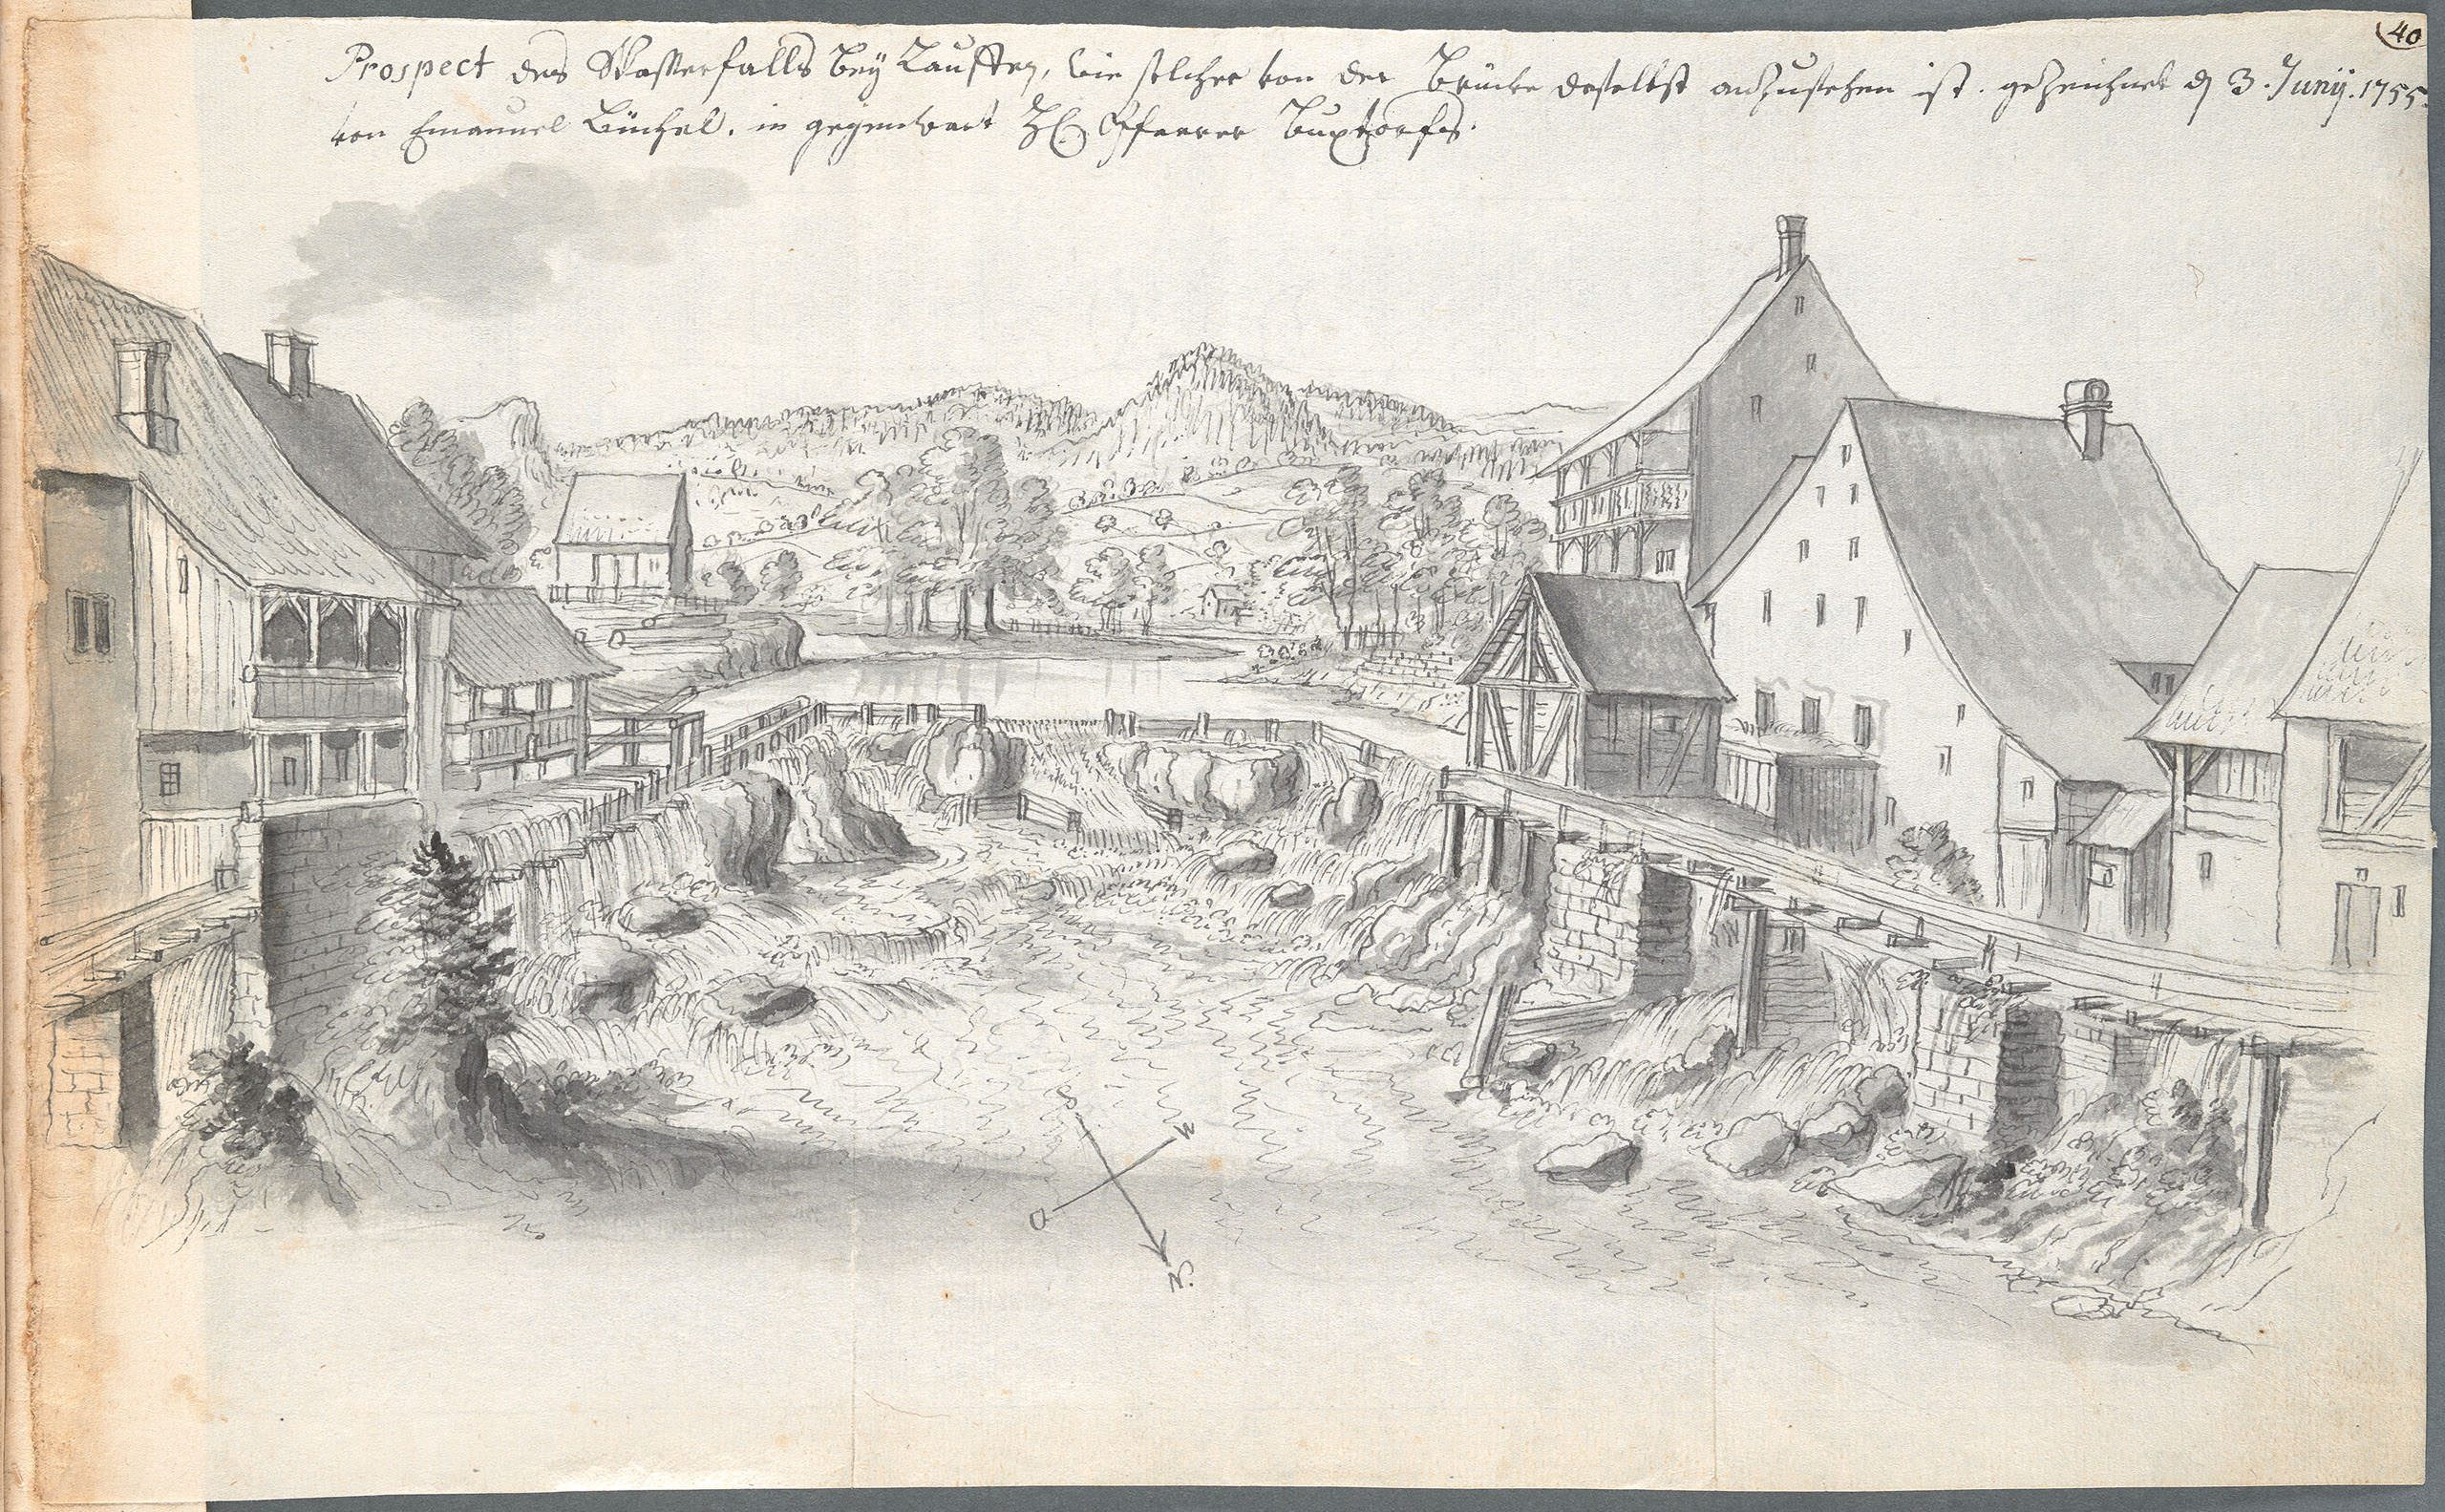 40
Prospect des Wasserfalls bey Lauffen, wie solcher von der Brücke daselbst anzusehen ist. gezeichnet d 3. Junÿ. 1755.
von Emanuel Büchel. in gegenwart Hℓ. Pfarrer Buxtorfs.
S
W
O
N.